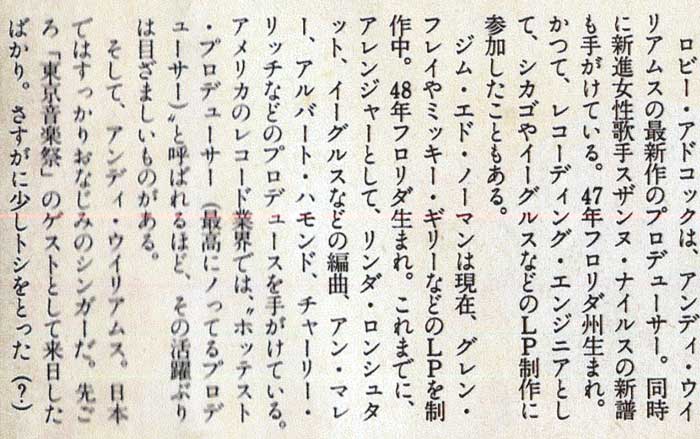 ロビー・アドコックは、アンディ・ウイ
リアムスの最新作のプロデューサー。同時
に新進女性歌手スザンヌ・ナイルスの新譜
も手がけている。47年フロリダ州生まれ。
かつて、レコーディング・エンジニアとし
て、シカゴやイーグルスなどのLP制作に
参加したこともある。
ジム・エド・ノーマンは現在、グレン・
フレイやミッキー・ギリーなどのLPを制
作中。48年フロリダ生まれ。これまでに、
アレンジャーとして、リンダ・ロンシュタ
ット、イーグルスなどの編曲、アン・マレ
ー、アルバート・ハモンド、チャーリー・
リッチなどのプロデュースを手がけている。
アメリカのレコード業界では、〝ホッテスト
・プロデューサー（最高にノッてるプロデ
ューサー）〟と呼ばれるほど、その活躍ぶり
は目ざましいものがある。
そして、アンディ・ウイリアムス。日本
ではすっかりおなじみのシンガーだ。先ご
ろ「東京音楽祭」のゲストとして来日した
ばかり。さすがに少しトシをとった（？）